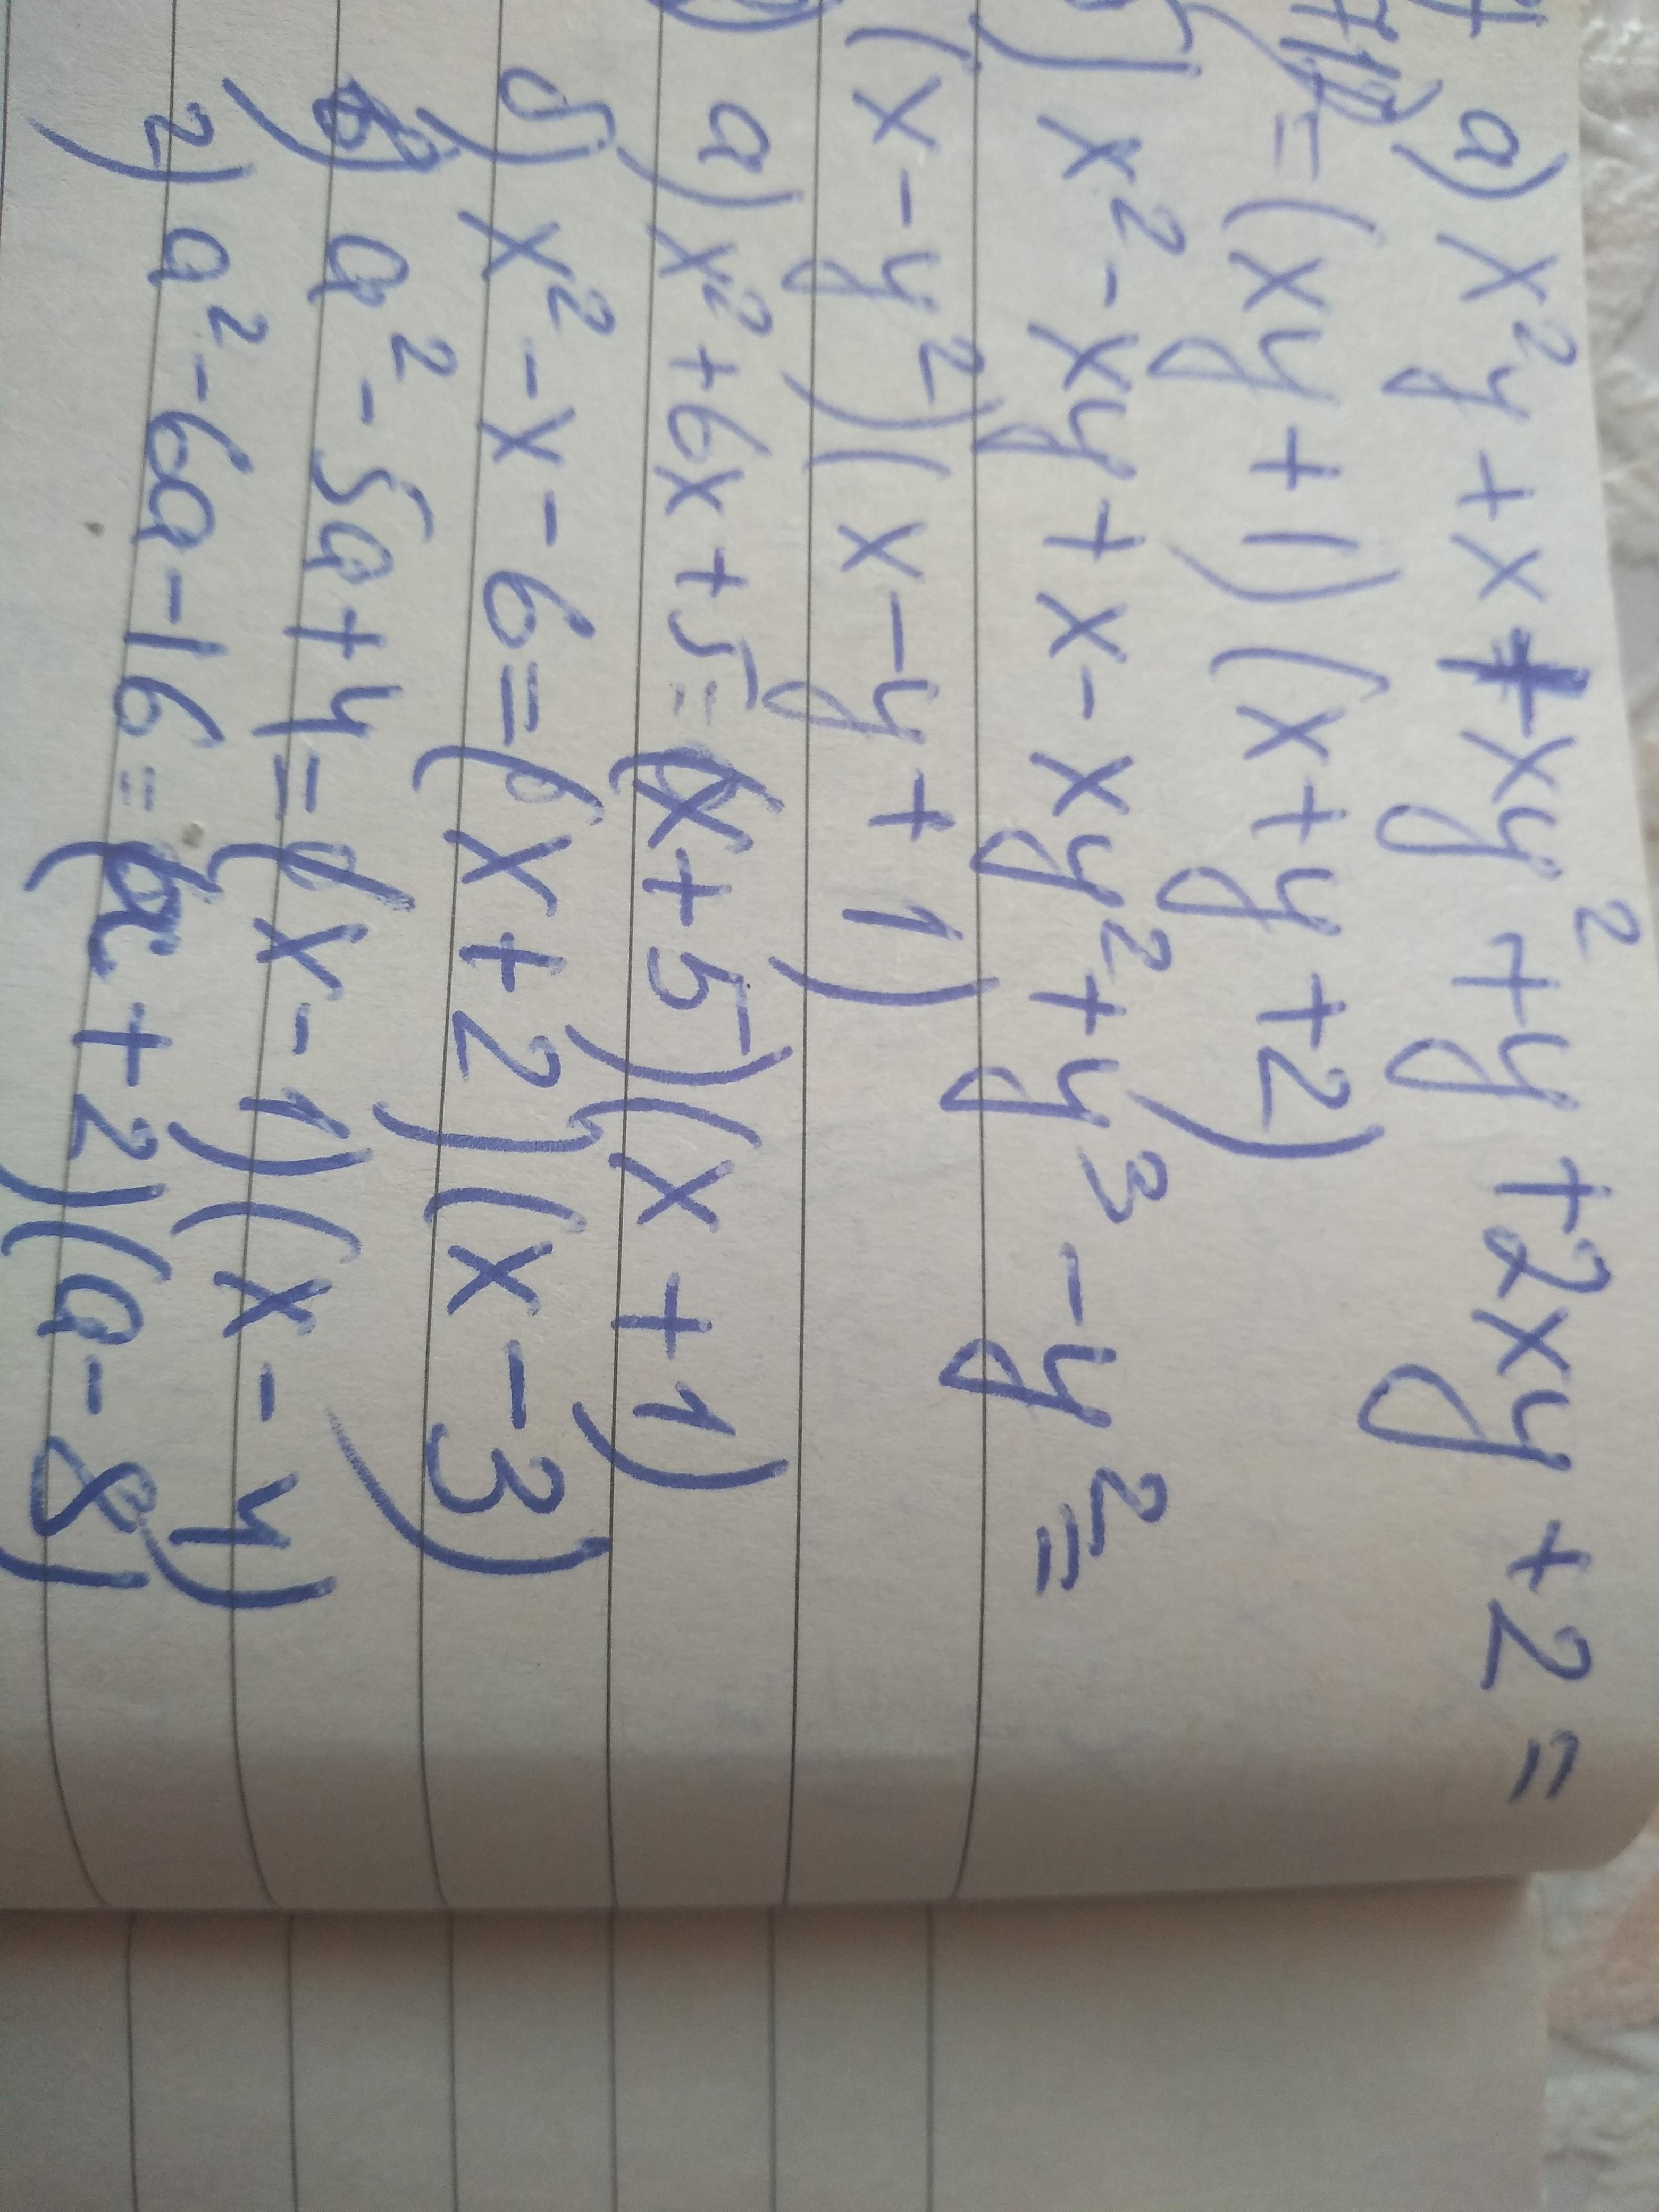 а) x²y + x + xy² + y + 2xy + 2 =
= (xy + 1)(x + y + 2)
x² - xy + x - xy² + y³ - y² =
(x - y²)(x - y + 1)
а) x² + 6x + 5 = (x + 5)(x + 1)
б) x² - x - 6 = (x + 2)(x - 3)
в) a² - 5a + 4 = (x - 1)(x - 4)
г) a² - 6a - 16 = (a + 2)(a - 8)